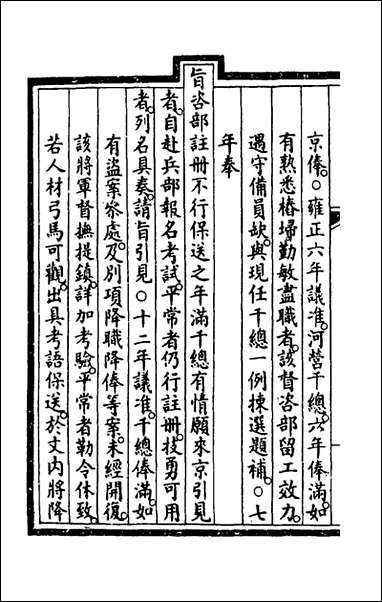 京俸。○雍正六年議准。河營千總。六年俸滿。如
有熟悉樁埽勤敏盡職者。該督咨部留工效力。
遇守備員缺。與現任千總一例揀選題補。○七
年奉
旨咨部註冊不行保送之年滿千總有情願來京引見
者。自赴兵部報名考試。平常者仍行註冊。技勇可用
者。列名具奏。請旨引見○十二年議准。千總俸滿。如
有盜案參處。及別項降職降俸等案。未經開復。
該將軍督撫提鎮。詳加考驗。平常者勒令休致。
若人材弓馬可觀。出具考語保送。於文內將降